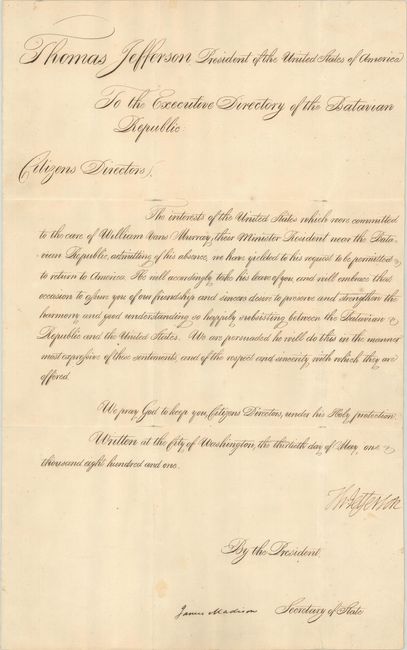 Thomas Jefferson President of the United States of America
To the Executive Directory of the Batavian
Republic:
Citizens Directors,
The interests of the United States which were committed
to the care of William Vans Murray, their Minister Resident near the Bata-
-vian Republic, admitting of his absence, we have yielded to his request to be permitted
to return to America. He will accordingly take his leave of you, and will embrace that
occasion to assure you of our friendship and sincere desire to preserve and strengthen the
harmony and good understanding so happily subsisting between the Batavian
Republic and the United States. We are persuaded he will do this in the manner
most expressive of these sentiments, and of the respect and sincerity with which they are
offered.
We pray God to keep you, Citizens Directors, under his Holy protection.
Written at the City of Washington, the thirtieth day of May, one
thousand eight hundred and one.
Th: Jefferson
By the President
James Madison Secretary of State